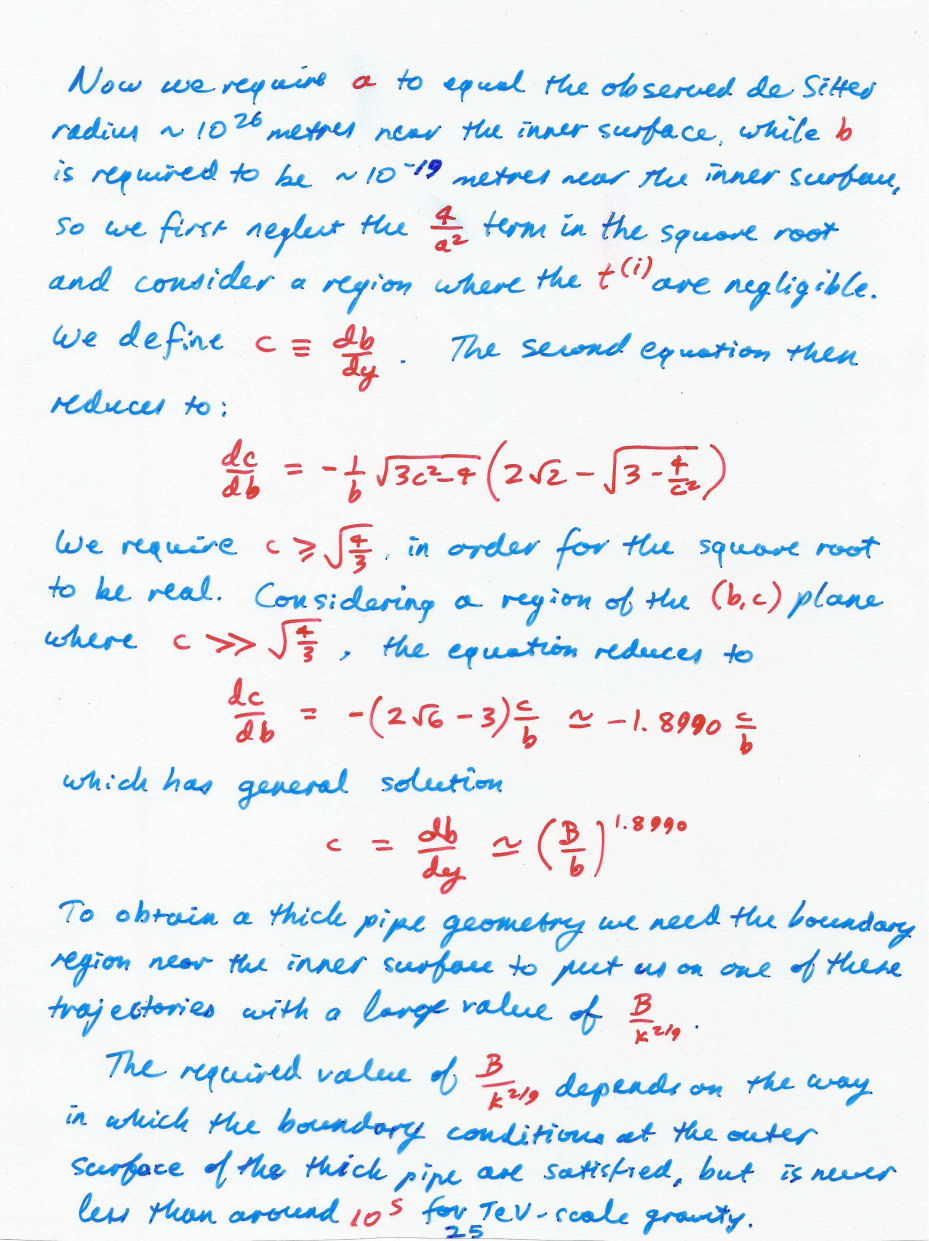 Now we require a to equal the observed de Sitter
radius ~ 10^26 metres near the inner surface, while b
is required to be ~10^-19 metres near the inner surface,
so we first neglect the 4/a^2 term in the square root
and consider a region where the t^(i) are negligible.
We define c ≡ db/dy. The second equation then
reduces to:
dc/db = -1/b √(3c^2-4) (2√2 - √(3 - 4/c^2))
We require c ⩾ √(4/3), in order for the square root
to be real. Considering a region of the (b,c) plane
where c >> √(4/3), the equation reduces to
dc/db = -(2√6 - 3) c/b ≃ -1.8990 c/b
which has general solution
c = db/dy ≃ (B/b)^1.8990
To obtain a thick pipe geometry we need the boundary
region near the inner surface to put us on one of these
trajectories with a large value of B/κ^2/9.
The required value of B/κ^2/9 depends on the way
in which the boundary conditions at the outer
surface of the thick pipe are satisfied, but is never
less than around 10^5 for TeV-scale gravity.
25